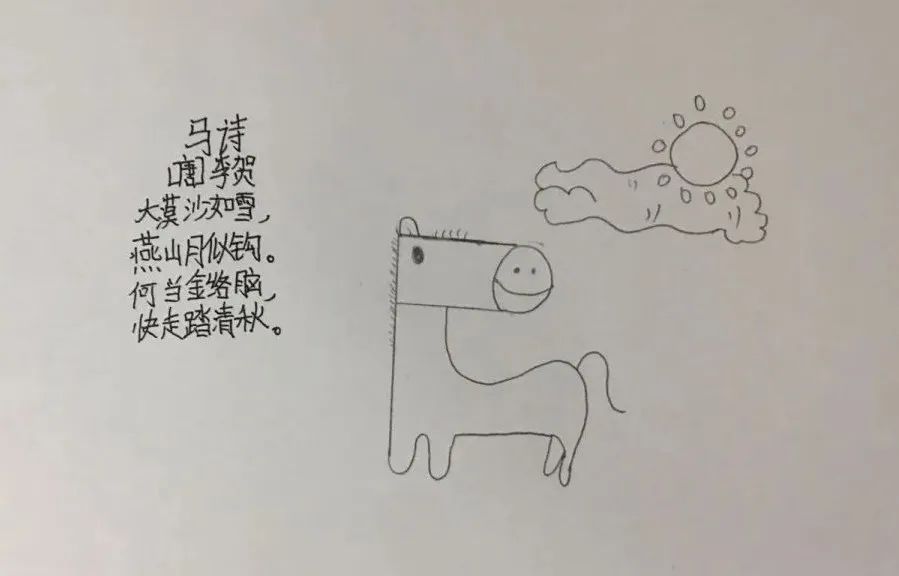 马诗
[唐]李贺
大漠沙如雪，
燕山月似钩。
何当金络脑，
快走踏清秋。